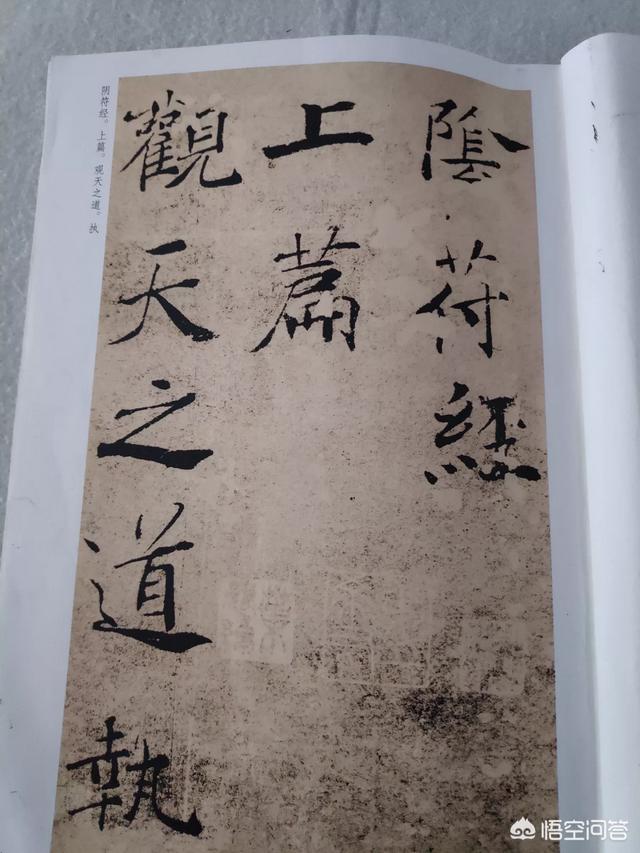 陰符經
上篇
觀天之道執
阴符经。上篇。观天之道。执
悟空问答